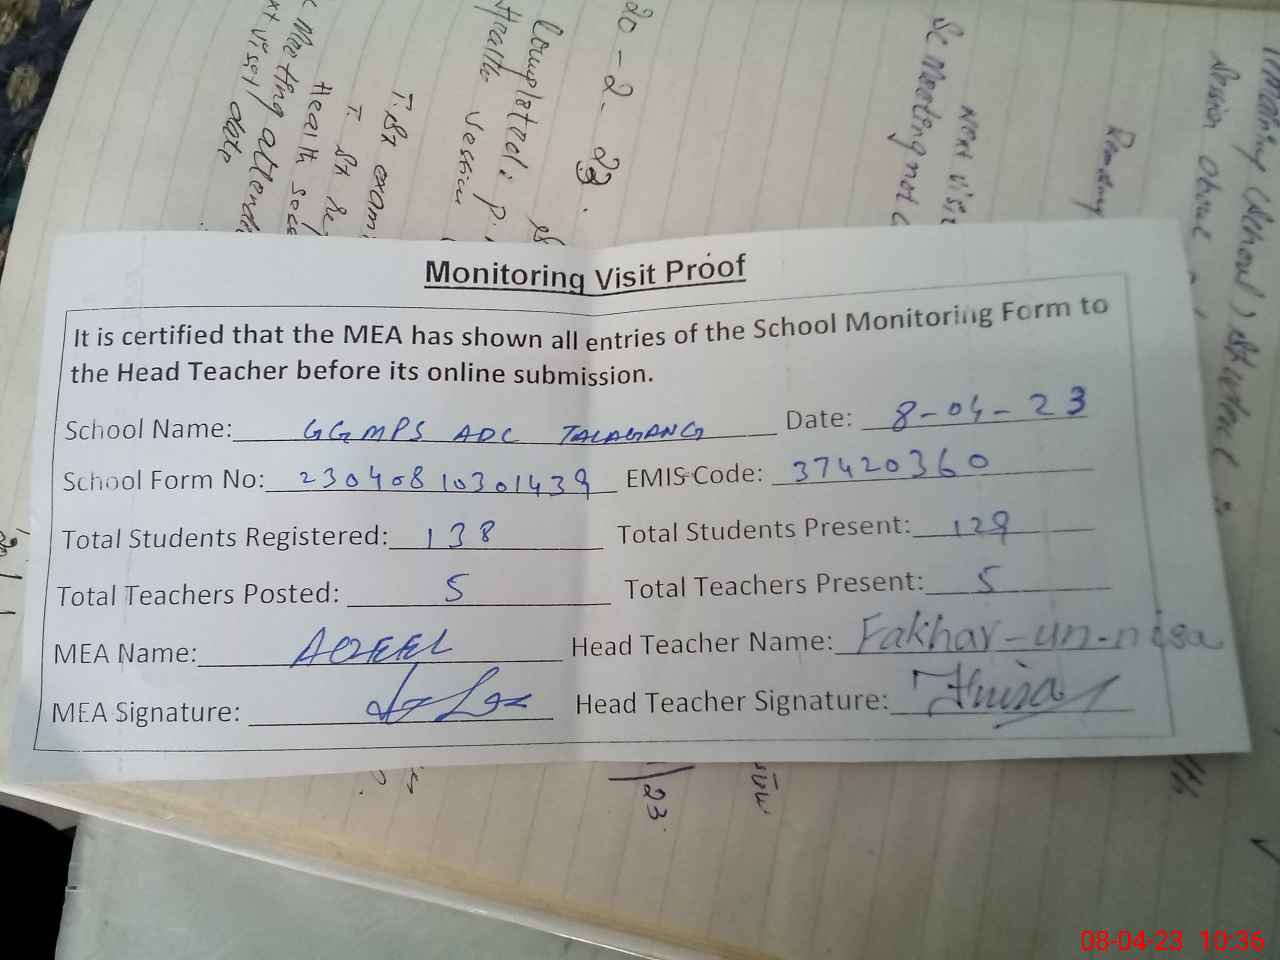 20-2-23.
Completed: P.
Health session
T. St exam
T. St
Health
Meeting attend
visit date
Sc Meeting not
next visi
Monitoring Visit Proof
It is certified that the MEA has shown all entries of the School Monitoring Form to
the Head Teacher before its online submission.
School Name: GGMPS ADC TALAGANG Date: 8-04-23
School Form No: 23040810301439 EMIS Code: 37420360
Total Students Registered: 138 Total Students Present: 129
Total Teachers Posted: 5 Total Teachers Present: 5
MEA Name: AQEEL Head Teacher Name: Fakhar-un-nisa
MEA Signature: Head Teacher Signature:
23.
08-04-23 10:36